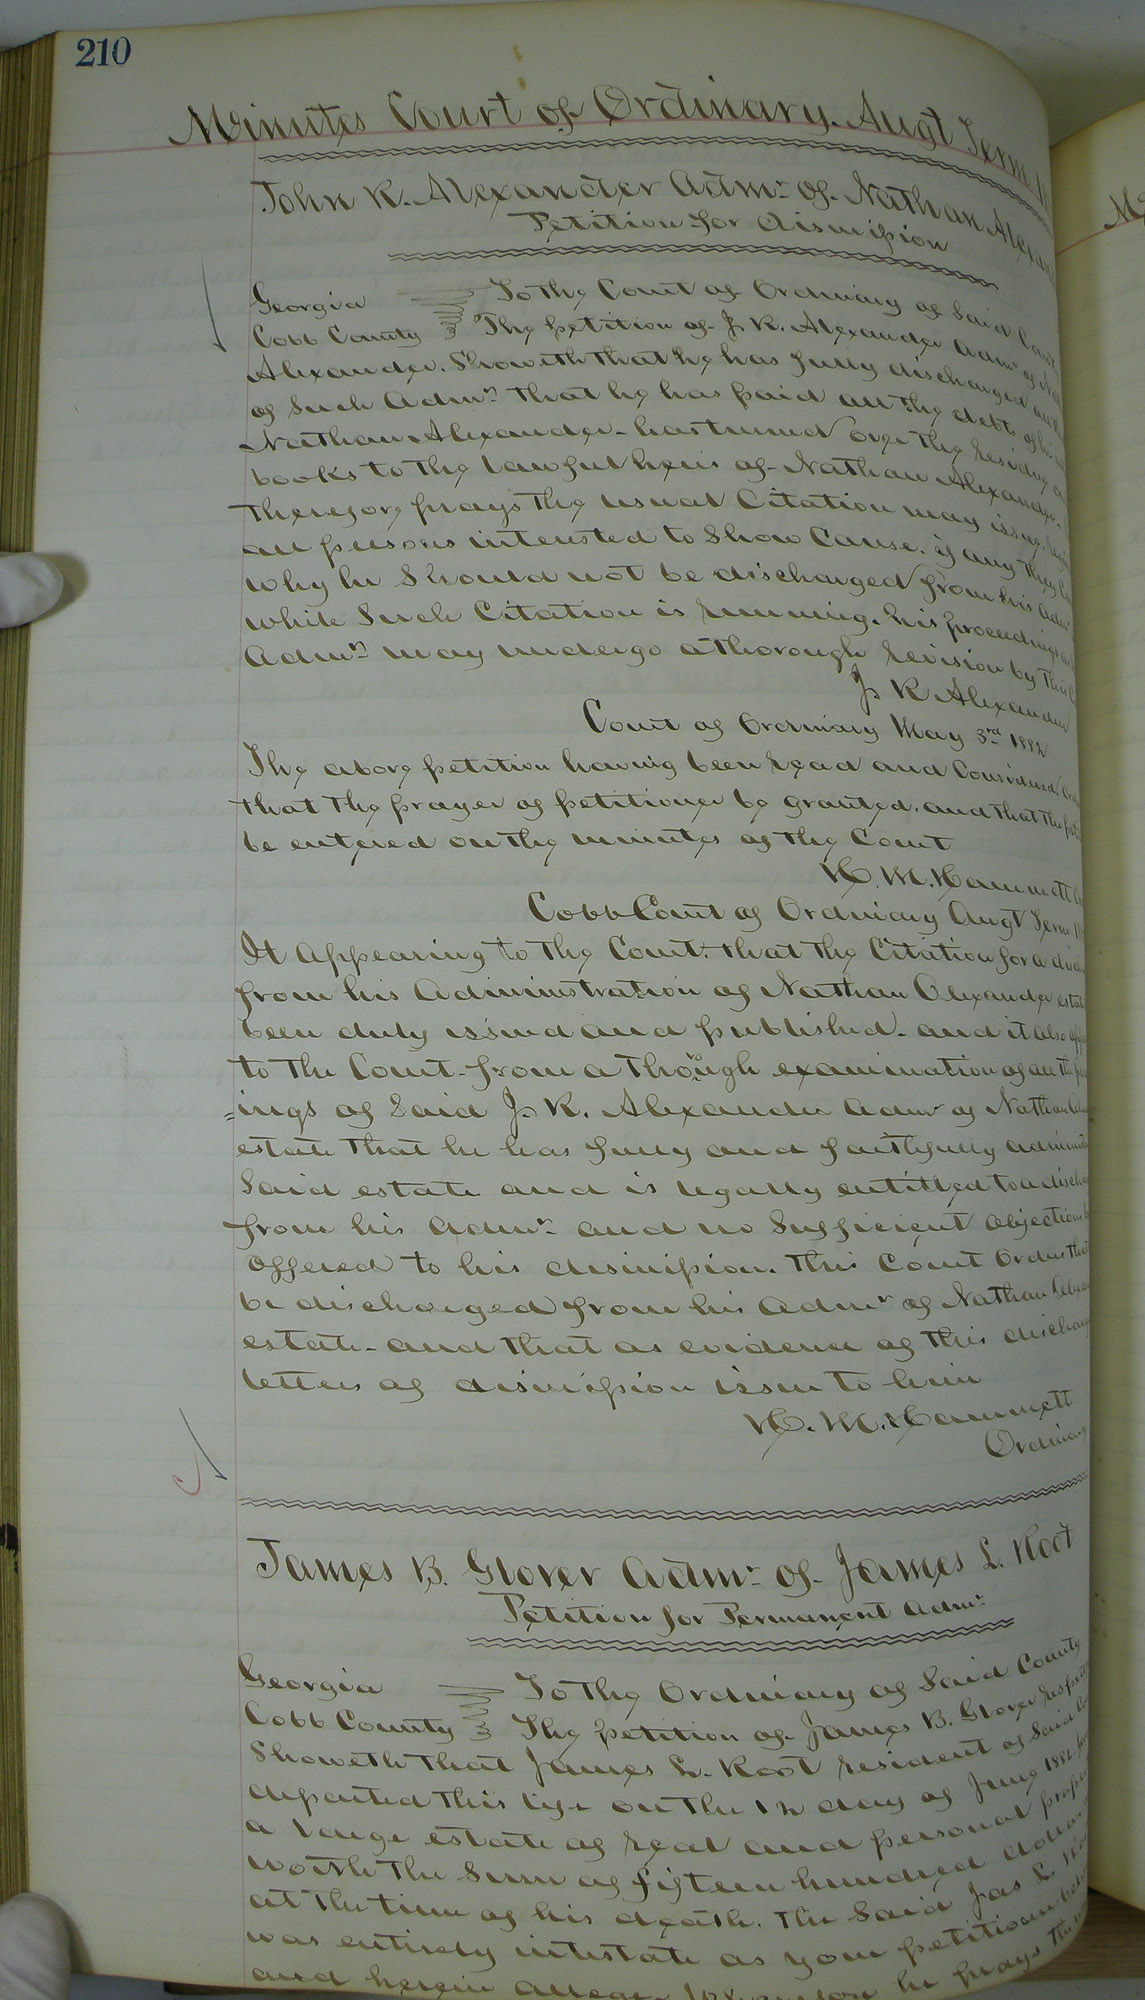 210
Minutes Court of Ordinary. Augt Term
John R. Alexander Admr. of Nathan Alexan
Petition for dismission
Georgia To the Court of Ordinary of Said
Cobb County The petition of J. R. Alexander Admr of
Alexander. Showeth that he has fully discharged
of Such Admn that he has paid all the debts of
Nathan Alexander. has turned over the residue
books to the lawful heirs of Nathan Alexander.
Therefore prays the usual Citation may issue.
all persons interested to Show Cause. if any they
why he Should not be discharged from his Adm
while Such Citation is running. his proceedings
Admn may undergo a thorough revision by
J. R Alexander
Court of Ordinary May 3rd 1882
The above petition having been read and Considered
that the prayer of petitioner be granted. and that the
be entered on the minutes of the Court
H. M. Hammett
Cobb Court of Ordinary Augt Term
It appearing to the Court. that the Citation for a
from his Administration of Nathan Alexander
been duly issued and published. and it also
to the Court. from a though examination of all the
=ings of Said J. R. Alexander Admr of Nathan
estate that he has fully and faithfully
Said estate and is legally entitled to a
from his Admn. and no Sufficient objection
offered to his dismission. This Court Orders that
be discharged from his Admn of Nathan
estate. and that as evidence of this discharge
letters of dismission issue to him
H. M. Hammett
Ordinary
James B. Glover Admr. of James L. Root
Petition for Permanent Admn.
Georgia To the Ordinary of Said County
Cobb County The petition of James B. Glover
Showeth that James L. Root resident of Said
departed this life on the 12 day of June 1882
a large estate of real and personal
worth the Sum of fifteen hundred dollars
at the time of his death. The Said Jas L.
was entirely intestate as your petitioner
and herein he prays